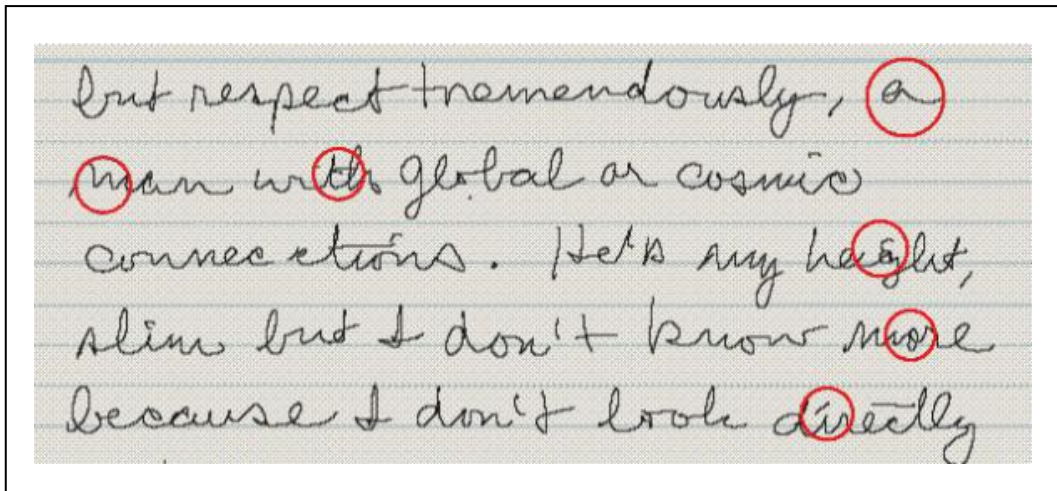 but respect tremendously, a
man with global or cosmic
connections. He's my height,
slim but I don't know more
because I don't look directly